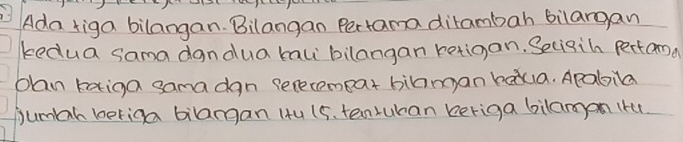 Ada tiga bilangan. Bilangan Pertama ditambah bilangan
kedua sama dgn dua kali bilangan ketigan. Selisih Pertama
dan ketiga sama dgn seperempat bilangan kedua. Apabila
jumlah ketiga bilangan itu 15. tentukan ketiga bilangan itu